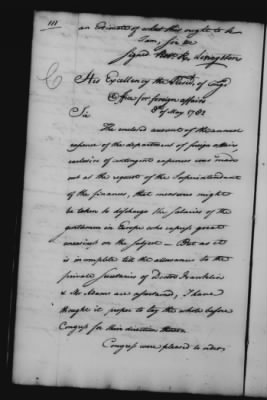 111
an Estimate of what this ought to be
I am Sir &c
signed Robt. R. Livingston
His Excellency the Presid. of Congs
Office for foreign affairs
8th of May 1782
Sir
The enclosed account of the annual
expence of the department of foreign affairs
exclusive of contingent expences was made
out at the request of the Superintendant
of the finances, that measures might
be taken to discharge the Salaries of the
gentlemen in Europe who express great
uneasiness on the subject — But as it
is incomplete till the allowances to the
private Secretaries of Doctor Franklin
& Mr Adams are ascertained, I have
thought it proper to lay the whole before
Congress for their direction thereon
Congress were pleased to order